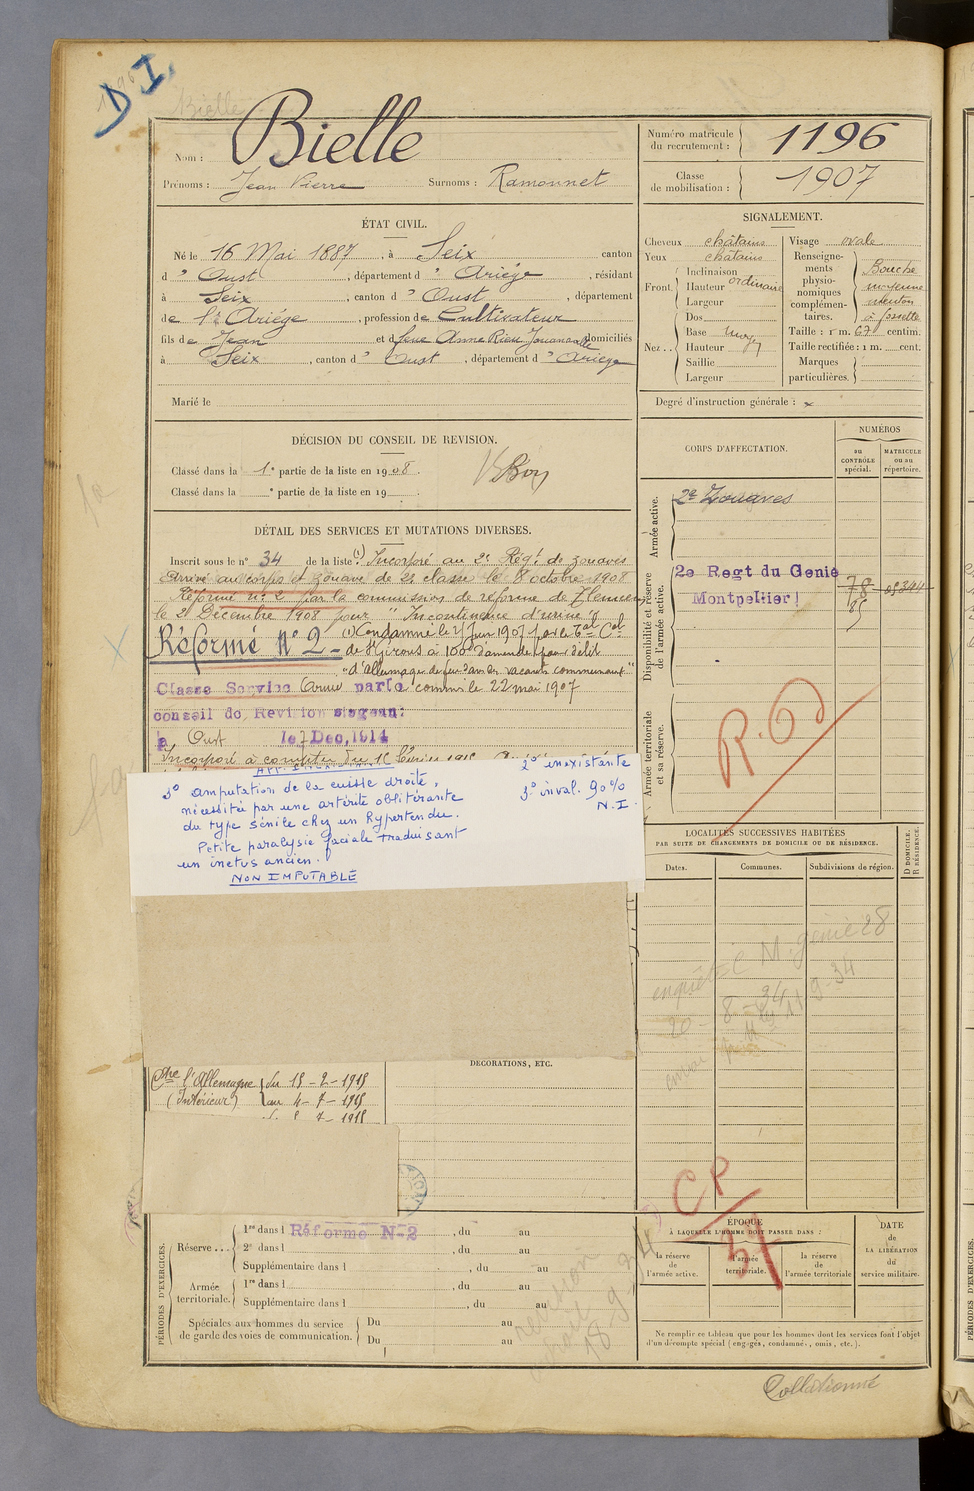 D I.
Bielle
Nom : Bielle
Prénoms : Jean Pierre Surnoms : Ramonnet
Numéro matricule du recrutement : 1196
Classe de mobilisation : 1907
ÉTAT CIVIL.
Né le 16 Mai 1887, à Seix canton
d' Oust, département d' Ariège, résidant
à Seix, canton d' Oust, département
de l'Ariège, profession de Cultivateur
fils de Jean et de feue Anne Rieu Jouancalle domiciliés
à Seix, canton d' Oust, département d' Ariège
Marié le
SIGNALEMENT.
Cheveux châtains
Yeux châtains
Front. Inclinaison
Hauteur ordinaire
Largeur
Nez.. Dos
Base moy
Hauteur
Saillie
Largeur
Visage ovale
Renseignements physionomiques complémentaires. Bouche moyenne menton à fossette
Taille : 1 m. 67 centim.
Taille rectifiée : 1 m. cent.
Marques particulières.
Degré d'instruction générale : x
DÉCISION DU CONSEIL DE REVISION.
Classé dans la 1e partie de la liste en 1908.
Classé dans la e partie de la liste en 19
Bon
DÉTAIL DES SERVICES ET MUTATIONS DIVERSES.
Inscrit sous le n° 34 de la liste (1) Incorporé au 2e Régt de zouaves
Arrivé au corps et zouave de 2e classe le 8 octobre 1908
Réformé n° 2 par la commission de réforme de Tlemcen
le 2 Décembre 1908 pour "Incontinence d'urine"
Réformé N° 2 –
(1) Condamné le 21 Juin 1907 par le Tal Cel
de St Girons à 100f d'amende pour délit
"d'allumage de feu dans les vacants communaux"
commis le 22 mai 1907
Classé Service Armé par le
conseil de Revision siegeant
à Oust le 7 Dec, 1914
Incorporé à compter du 16 février 1915
3° amputation de la cuisse droite,
nécessitée par une artérite oblitérante
du type sénile chez un Hypertendu.
Petite paralysie faciale traduisant
un ictus ancien.
NON IMPUTABLE
2° inexistante
3° inval. 90%
N. I.
CORPS D'AFFECTATION.
NUMÉROS
au CONTRÔLE spécial.
MATRICULE ou au répertoire.
Armée active.
2e Zouaves
Disponibilité et réserve de l'armée active.
2e Regt du Genie
Montpellier
78
85
Armée territoriale et sa réserve.
R.O
LOCALITÉS SUCCESSIVES HABITÉES
PAR SUITE DE CHANGEMENTS DE DOMICILE OU DE RÉSIDENCE.
Dates.
Communes.
Subdivisions de région.
D DOMICILE.
R RÉSIDENCE.
enquête C M. génie 28
20-8-34
11 9-34
DÉCORATIONS, ETC.
Ctre l'Allemagne du 15 – 2 – 1915
(Intérieur) au 4 – 7 – 1915
7 – 1915
CP
34
PÉRIODES D'EXERCICES.
Réserve... 1re dans l Réformé N-2, du au
2e dans l , du au
Supplémentaire dans l , du au
Armée territoriale. 1re dans l , du au
Supplémentaire dans l , du au
Spéciales aux hommes du service de garde des voies de communication. Du au
Du au
18-9-34
ÉPOQUE
À LAQUELLE L'HOMME DOIT PASSER DANS :
la réserve de l'armée active.
l'armée territoriale.
la réserve de l'armée territoriale
DATE DE LA LIBÉRATION du service militaire.
Ne remplir ce tableau que pour les hommes dont les services font l'objet
d'un décompte spécial (engagés, condamnés, omis, etc.).
Collationné
PÉRIODES D'EXERCICES